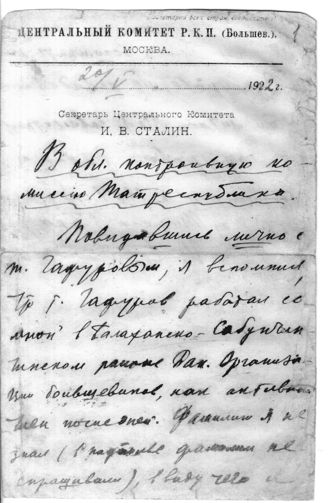 ЦЕНТРАЛЬНЫЙ КОМИТЕТ Р.К.П. (Большев.)
МОСКВА.
20/V 1922 г.
Секретарь Центрального Комитета
И. В. СТАЛИН.
В обл. контрольную ко-
миссию Татреспублики.
Повидавшись лично с
т. Гафуровым, я вспомнил,
что т. Гафуров работал со
мной в Балахано-Сабунчин
ском районе Бак. Организа-
ции большевиков, как активный
член
Фамилии я не
знал (в фамилии не
спрашивали), ввиду чего и